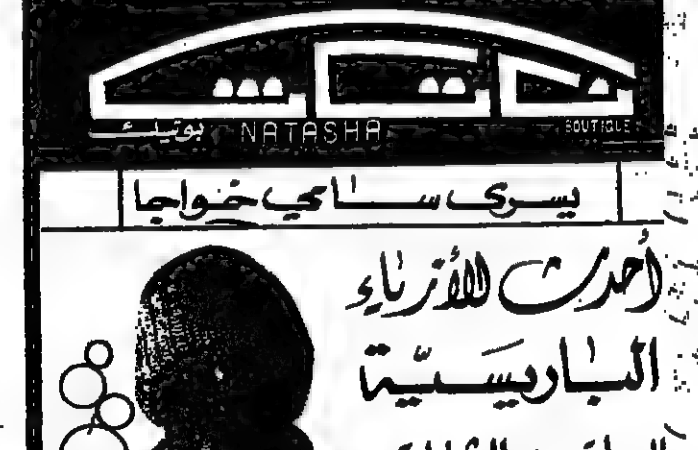 ناتاشا
بوتيك NATASHA BOUTIQUE
يسرى سامي خواجا
أحدث الأزياء
الباريسيّة